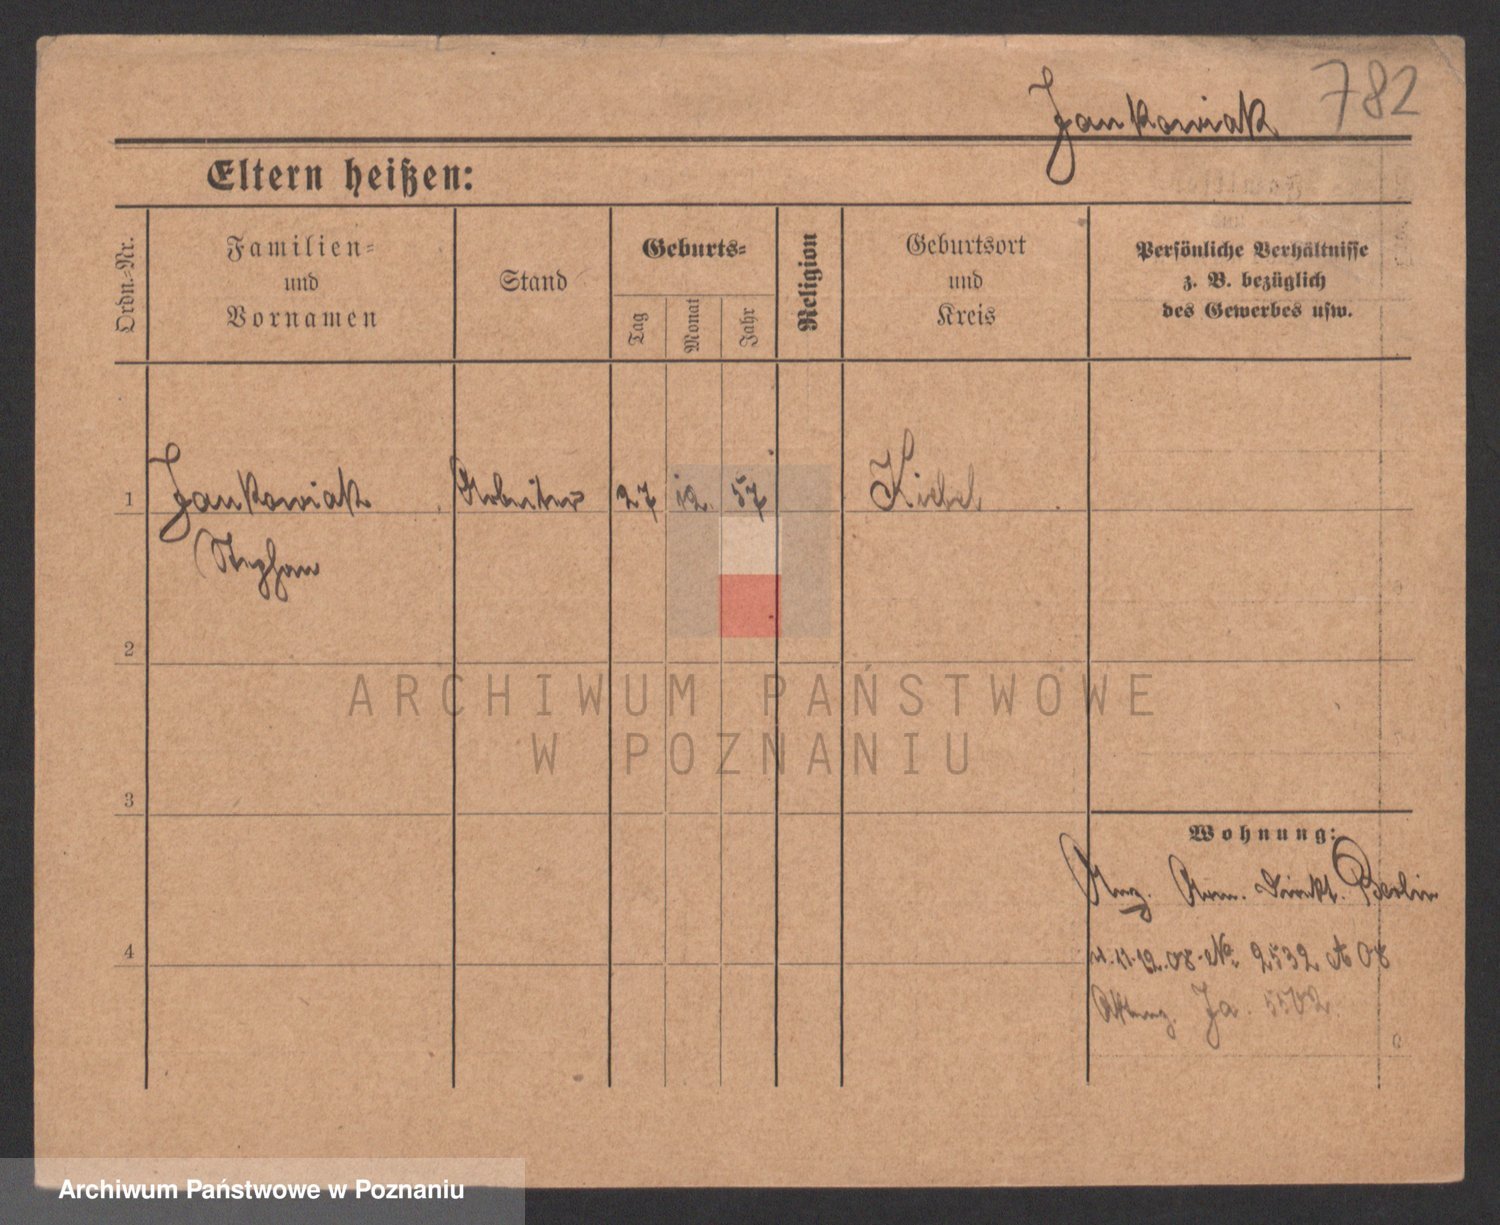 782
Jankowiak
Eltern heißen:
Ordn.-Nr.
Familien-
und
Vornamen
Stand
Geburts-
Tag
Monat
Jahr
Religion
Geburtsort
und
Kreis
Persönliche Verhältnisse
z. B. bezüglich
des Gewerbes usw.
1
Jankowiak
Arbeiter
27
12.
57
Kiebel
Stephan
2
ARCHIWUM PAŃSTWOWE
W POZNANIU
3
Wohnung:
Anz. Arm. Direkt. Berlin
v. 11.12.08. No. 2532 A 08
Ja. 5502
4
Archiwum Państwowe w Poznaniu